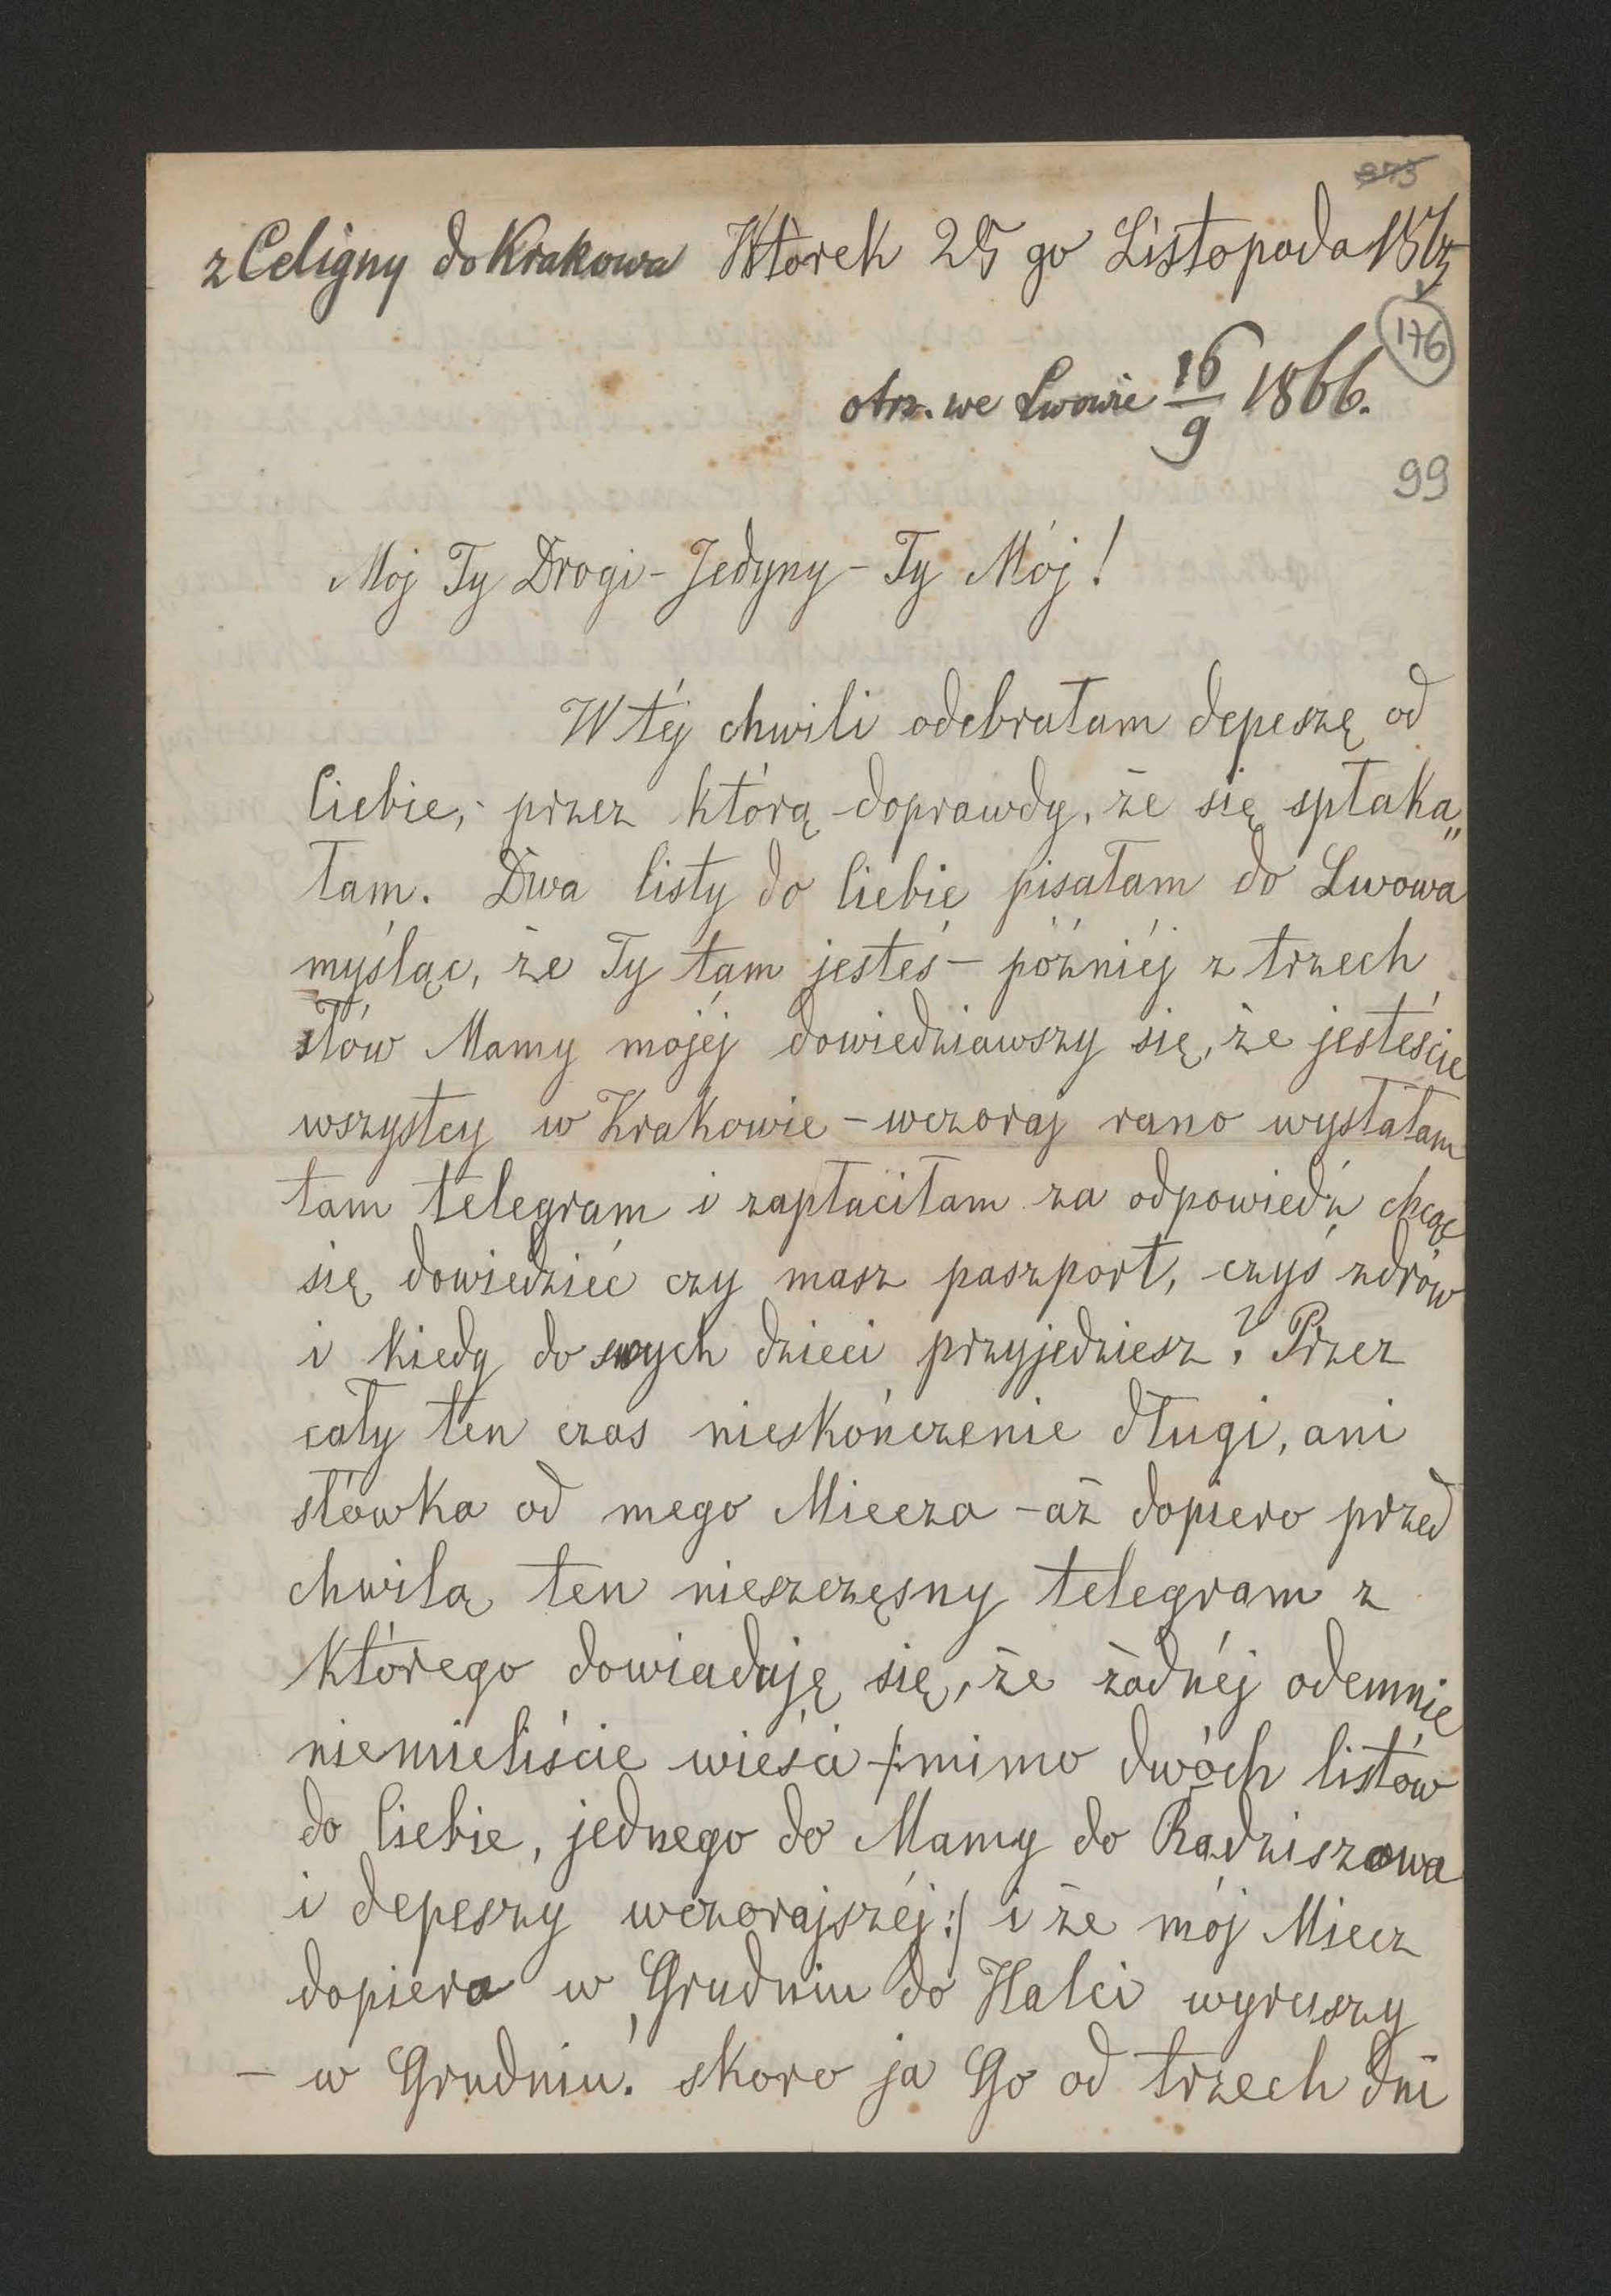 873
z Celigny do Krakowa Wtorek 25 go Listopada
176
otrz. we Lwowie 16/9 1866.
99
Mój Ty Drogi - Jedyny - Ty Mój!
W téj chwili odebrałam depeszę od
Ciebie, - przez którą doprawdy, że się spłaka„
łam. Dwa listy do Ciebie pisałam do Lwowa
myśląc, że Ty tam jesteś - późniéj z trzech
słów Mamy mojéj dowiedziawszy się, że jesteście
wszyscy w Krakowie - wczoraj rano wysłałam
tam telegram i zapłaciłam za odpowiedź chcąc
się dowiedzieć czy masz paszport, czyś zdrów
i kiedy do swych dzieci przyjedziesz? Przez
cały ten czas nieskończenie długi, ani
słówka od mego Miecza - aż dopiero przed
chwilą ten nieszczęsny telegram z
którego dowiaduję się, że żadnéj odemnie
niemieliście wieści /: mimo dwóch listów
do Ciebie, jednego do Mamy do Radziszowa
i depeszy wczorajszéj :/ i że mój Miecz
dopiero w Grudniu do Halci wyruszy
- w Grudniu! skoro ja Go od trzech dni